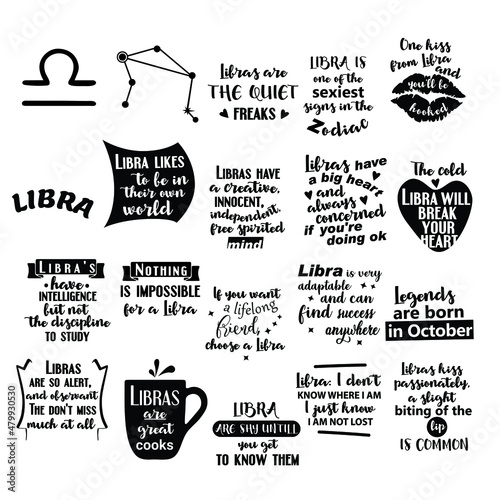 Libras are
THE QUIET
FREAKS
LIBRA IS
one of the
sexiest
signs in the
Zodiac
One kiss
from Libra and
you'll be
hooked
LIBRA
LIBRA LIKES
to be in
their own
world
LIBRAS HAVE
a creative,
INNOCENT,
independent,
free spirited
mind
Libras have
a big heart
and
always
concerned
if you're
doing ok
The cold
LIBRA WILL
BREAK
YOUR
HEART
LIBRA'S
have
INTELLIGENCE
but not
the discipline
TO STUDY
NOTHING
IS IMPOSSIBLE
FOR A LIBRA
If you want
a lifelong
friend,
choose a Libra
Libra is very
adaptable
and can
find success
anywhere
Legends
are born
in October
LIBRAS
ARE SO ALERT,
AND OBSERVANT
THE DON'T MISS
MUCH AT ALL
LIBRAS
are
great
cooks
LIBRA
ARE SHY UNTILL
you get
TO KNOW THEM
Libra: I don't
KNOW WHERE I AM
I just know
I AM NOT LOST
Libras kiss
passionately,
a slight
biting of the
lip
IS COMMON
479930530
Adobe Stock